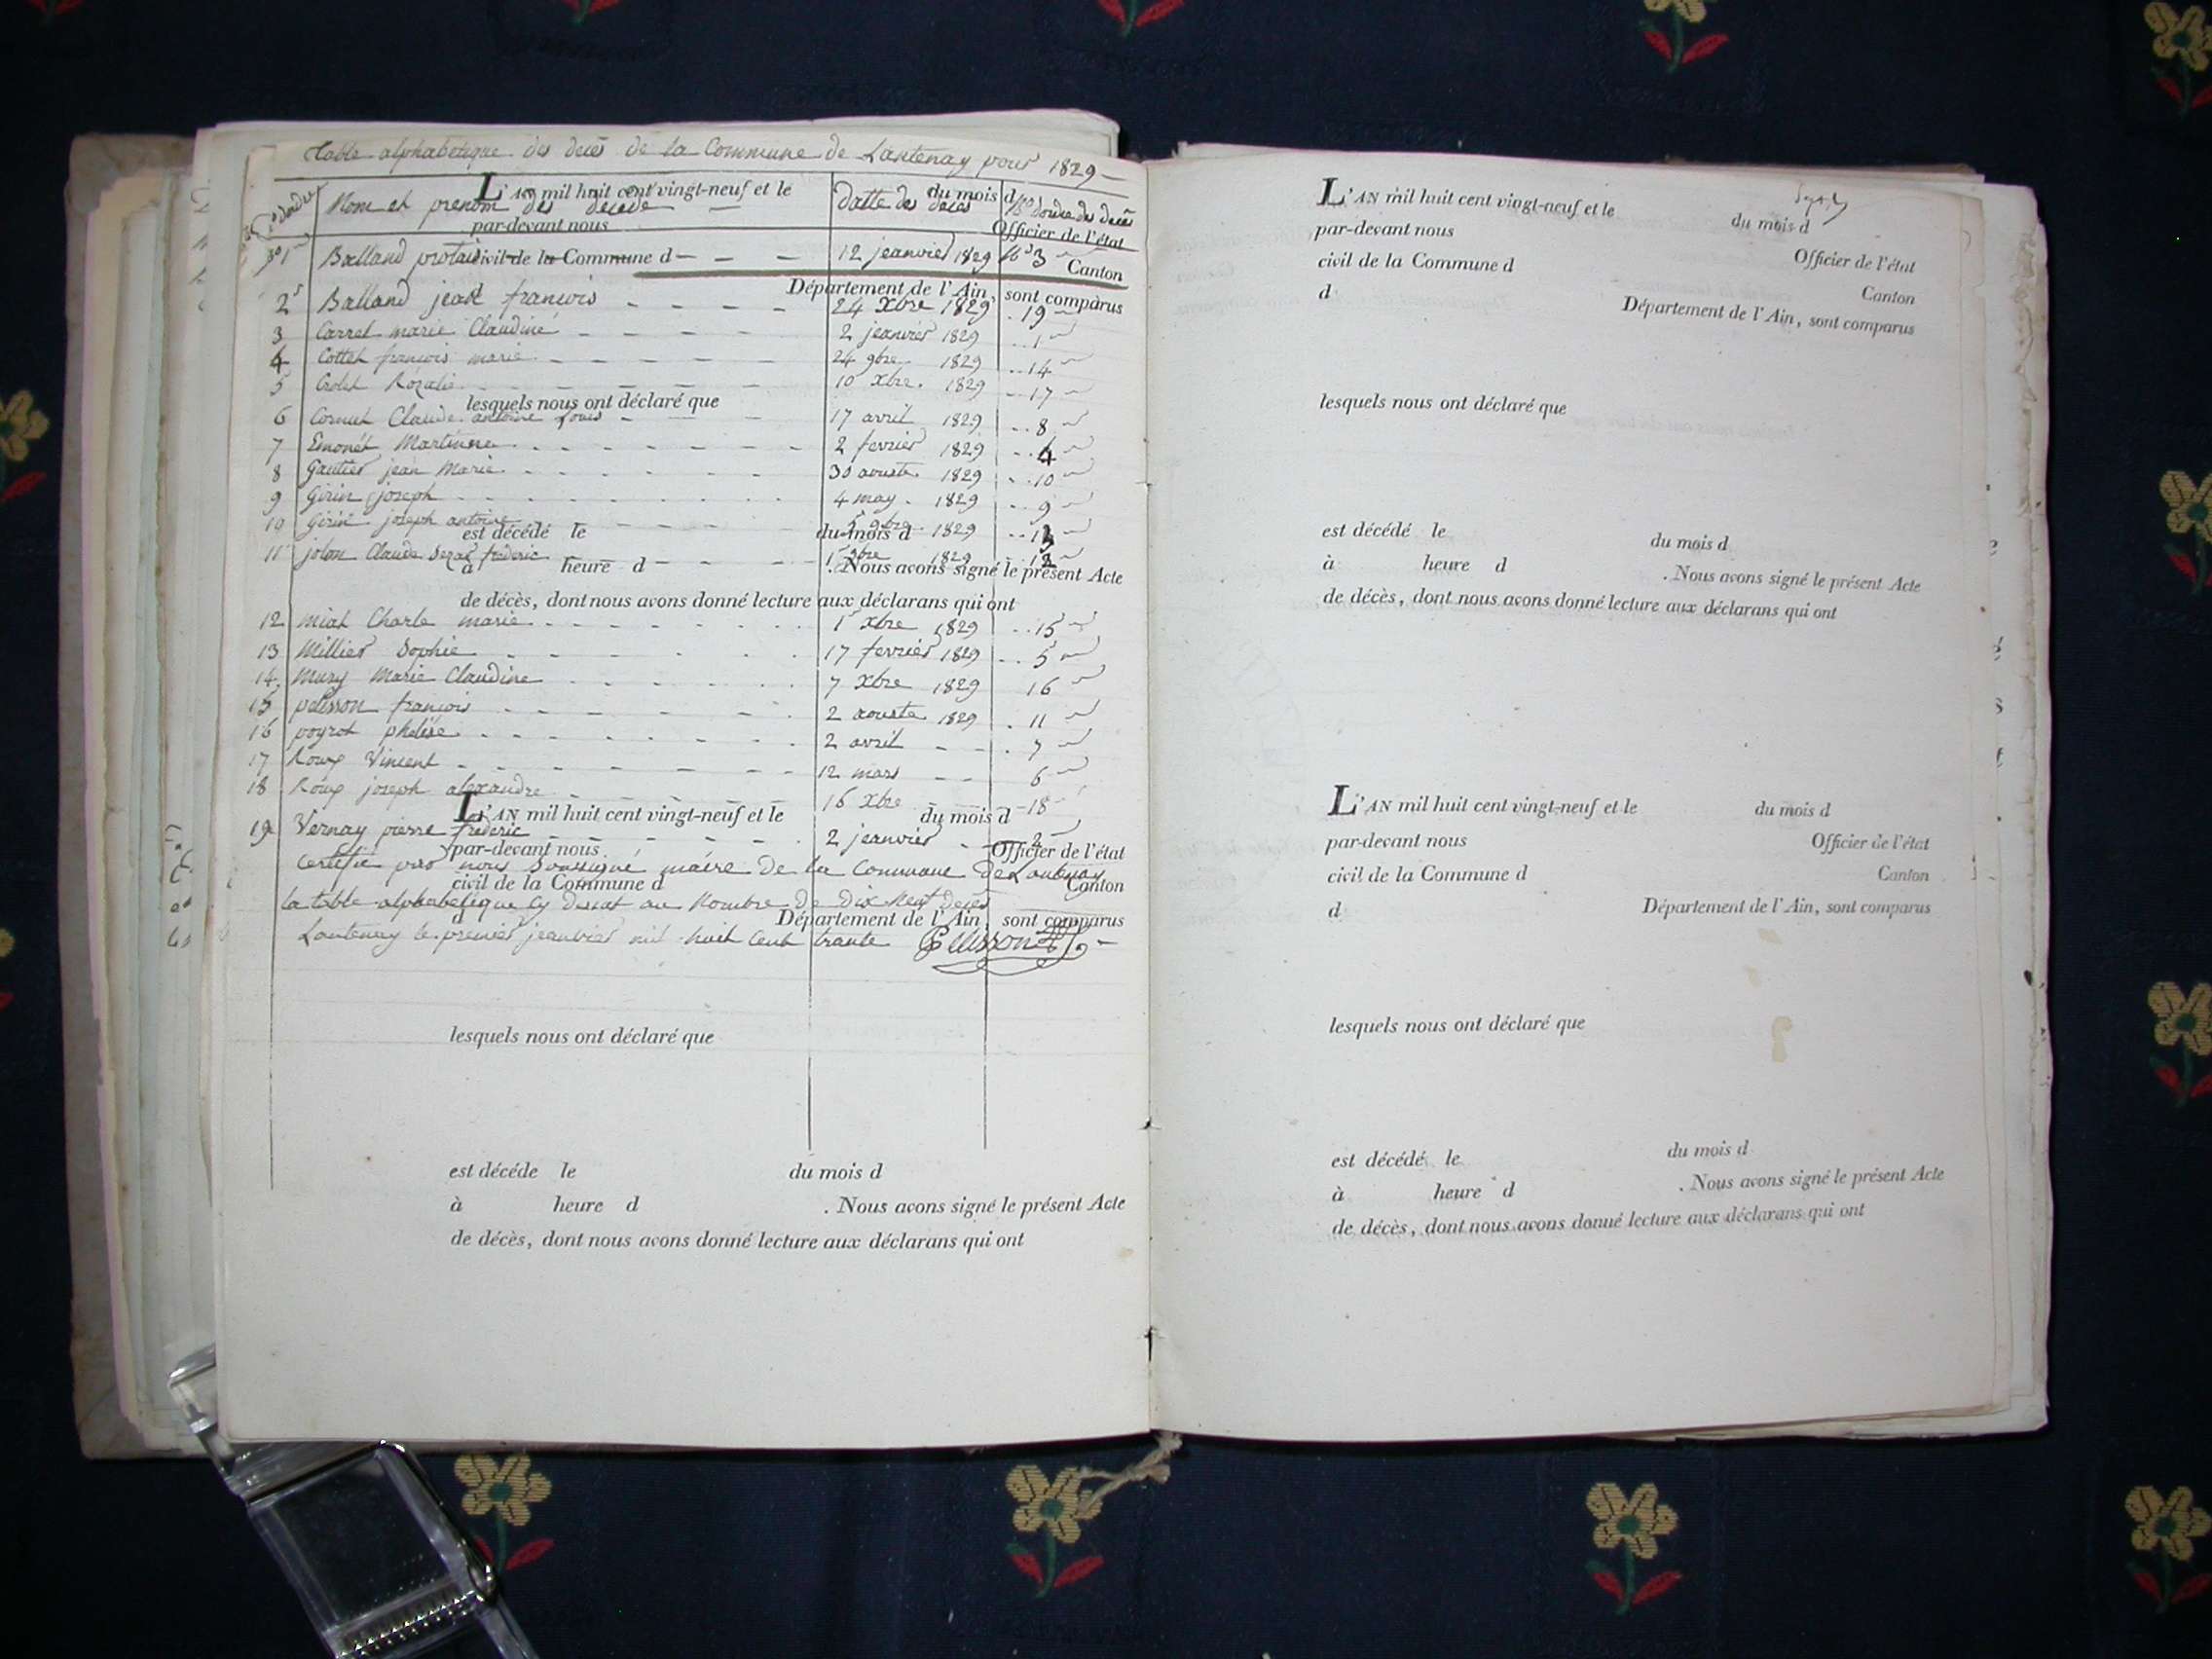 Table alphabetique des decès de la Commune de Lantenay pour 1829
L'AN mil huit cent vingt-neuf et le du mois d
Nom et prenom des décédé Datte des décès No d'ordre des decès
par-devant nous Officier de l'état
1 Balland protais 12 jeanvier 1829 No 3
civil de la Commune d Canton
d Département de l'Ain, sont comparus
2 Balland jean francois 24 xbre 1829 19
3 Carrel marie Claudine 2 jeanvier 1829 1
4 Cottet francois marie 24 9bre 1829 14
5 Crolet Rozalie 10 xbre. 1829 17
lesquels nous ont déclaré que
6 Cornut Claude antoine Louis 17 avril 1829 8
7 Emonét Martinne 2 fevrier 1829 4
8 Gautier jean Marie 30 aouste 1829 10
9 Girin joseph 4 may. 1829 9
10 Girin joseph antoine 9bre 1829 13
est décédé le du mois d
11 Claude frederic 1829 12
à heure d . Nous avons signé le présent Acte
de décès, dont nous avons donné lecture aux déclarans qui ont
12 miat Charle marie 1 xbre 1829 15
13 Millier Sophie 17 fevrier 1829 5
14 Mury Marie Claudine 7 xbre 1829 16
15 pelisson francois 2 aouste 1829 11
16 poyrot 2 avril 7
17 Roux Vincent 12 mars 6
18 Roux joseph alexandre 16 xbre 18
L'AN mil huit cent vingt-neuf et le du mois d
19 Vernay pierre frederic 2 jeanvier 2
par-devant nous Officier de l'état
Certifié par nous Soussigné maire de la Commune de Lantenay
civil de la Commune d Canton
la table alphabetique au Nombre de Dix Neuf decès
d Département de l'Ain, sont comparus
Lantenay le premier jeanvier mil huit cent trante Pelisson
lesquels nous ont déclaré que
est décéde le du mois d
à heure d . Nous avons signé le présent Acte
de décès, dont nous avons donné lecture aux déclarans qui ont
L'AN mil huit cent vingt-neuf et le du mois d
par-devant nous Officier de l'état
civil de la Commune d Canton
d Département de l'Ain, sont comparus
lesquels nous ont déclaré que
est décédé le du mois d
à heure d . Nous avons signé le présent Acte
de décès, dont nous avons donné lecture aux déclarans qui ont
L'AN mil huit cent vingt-neuf et le du mois d
par-devant nous Officier de l'état
civil de la Commune d Canton
d Département de l'Ain, sont comparus
lesquels nous ont déclaré que
est décédé le du mois d
à heure d . Nous avons signé le présent Acte
de décès, dont nous avons donné lecture aux déclarans qui ont